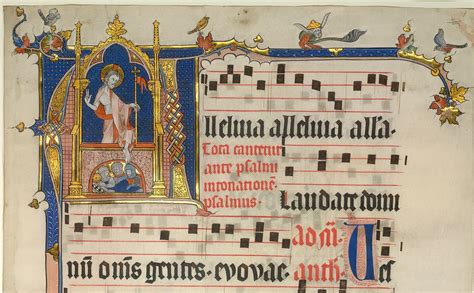 Alleluia alleluia alla.
Tota cantetur
ante psalmi
intonationē
psalmus.
Laudate domi
nū om̄s gentes. evovae.
ad m̄.
anth.
Ves